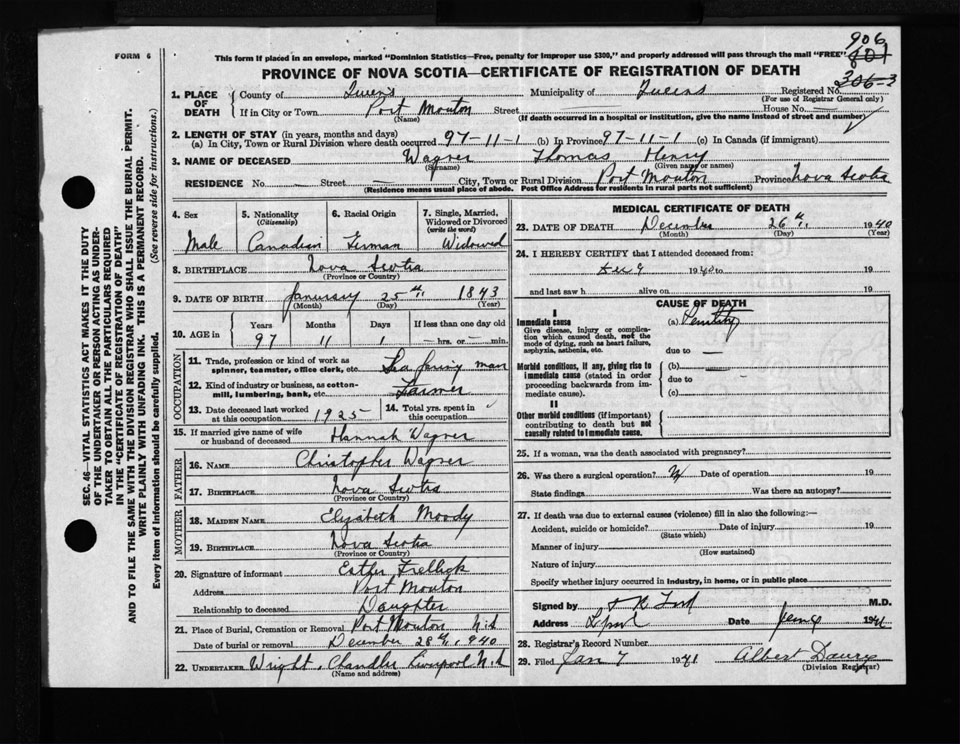 FORM 6
This form if placed in an envelope, marked "Dominion Statistics—Free, penalty for improper use $300," and properly addressed will pass through the mail "FREE"
906
801
PROVINCE OF NOVA SCOTIA—CERTIFICATE OF REGISTRATION OF DEATH
306-3
1. PLACE OF DEATH
County of Queen's Municipality of Queens Registered No.
(For use of Registrar General only)
If in City or Town Port Mouton Street — House No. —
(Name) (If death occurred in a hospital or institution, give the name instead of street and number)
2. LENGTH OF STAY (in years, months and days)
(a) In City, Town or Rural Division where death occurred 97-11-1 (b) In Province 97-11-1 (c) In Canada (if immigrant)
3. NAME OF DECEASED Wagner Thomas Henry
(Surname) (Given name or names)
RESIDENCE No. — Street — City, Town or Rural Division Port Mouton Province Nova Scotia
(Residence means usual place of abode. Post Office Address for residents in rural parts not sufficient)
4. Sex Male
5. Nationality (Citizenship) Canadian
6. Racial Origin German
7. Single, Married, Widowed or Divorced (write the word) Widowed
8. BIRTHPLACE Nova Scotia
(Province or Country)
9. DATE OF BIRTH January 25th, 1843
(Month) (Day) (Year)
10. AGE in Years Months Days If less than one day old
97 11 1 — hrs. or — min.
OCCUPATION
11. Trade, profession or kind of work as spinner, teamster, office clerk, etc. Sea faring man
12. Kind of industry or business, as cotton-mill, lumbering, bank, etc. Farmer
13. Date deceased last worked at this occupation 1925
14. Total yrs. spent in this occupation
15. If married give name of wife or husband of deceased Hannah Wagner
FATHER
16. NAME Christopher Wagner
17. BIRTHPLACE Nova Scotia
(Province or Country)
MOTHER
18. MAIDEN NAME Elizabeth Moody
19. BIRTHPLACE Nova Scotia
(Province or Country)
20. Signature of informant Esther Frellick
Address Port Mouton
Relationship to deceased Daughter
21. Place of Burial, Cremation or Removal Port Mouton N.S
Date of burial or removal December 28th, 1940
22. UNDERTAKER Wright, Chandler Liverpool N.S
(Name and address)
MEDICAL CERTIFICATE OF DEATH
23. DATE OF DEATH December 26th, 1940
(Month) (Day) (Year)
24. I HEREBY CERTIFY that I attended deceased from:
Dec 9 1940 to 19
and last saw h alive on 19
CAUSE OF DEATH
I
Immediate cause
Give disease, injury or complication which caused death, not the mode of dying, such as heart failure, asphyxia, asthenia, etc.
(a) Senility
due to —
Morbid conditions, if any, giving rise to immediate cause (stated in order proceeding backwards from immediate cause).
(b) —
due to —
(c)
II
Other morbid conditions (if important) contributing to death but not causally related to immediate cause.
25. If a woman, was the death associated with pregnancy?
26. Was there a surgical operation? Date of operation 19
State findings Was there an autopsy?
27. If death was due to external causes (violence) fill in also the following:—
Accident, suicide or homicide? Date of injury 19
(State which)
Manner of injury
(How sustained)
Nature of injury
Specify whether injury occurred in industry, in home, or in public place
Signed by M.D.
Address L'pool Date 1941
28. Registrar's Record Number
29. Filed Jan 7 1941 Albert
(Division Registrar)
SEC. 46—VITAL STATISTICS ACT MAKES IT THE DUTY
OF THE UNDERTAKER OR PERSON ACTING AS UNDERTAKER TO OBTAIN ALL THE PARTICULARS REQUIRED
IN THE "CERTIFICATE OF REGISTRATION OF DEATH"
AND TO FILE THE SAME WITH THE DIVISION REGISTRAR WHO SHALL ISSUE THE BURIAL PERMIT.
WRITE PLAINLY WITH UNFADING INK. THIS IS A PERMANENT RECORD.
Every item of information should be carefully supplied. (See reverse side for instructions.)